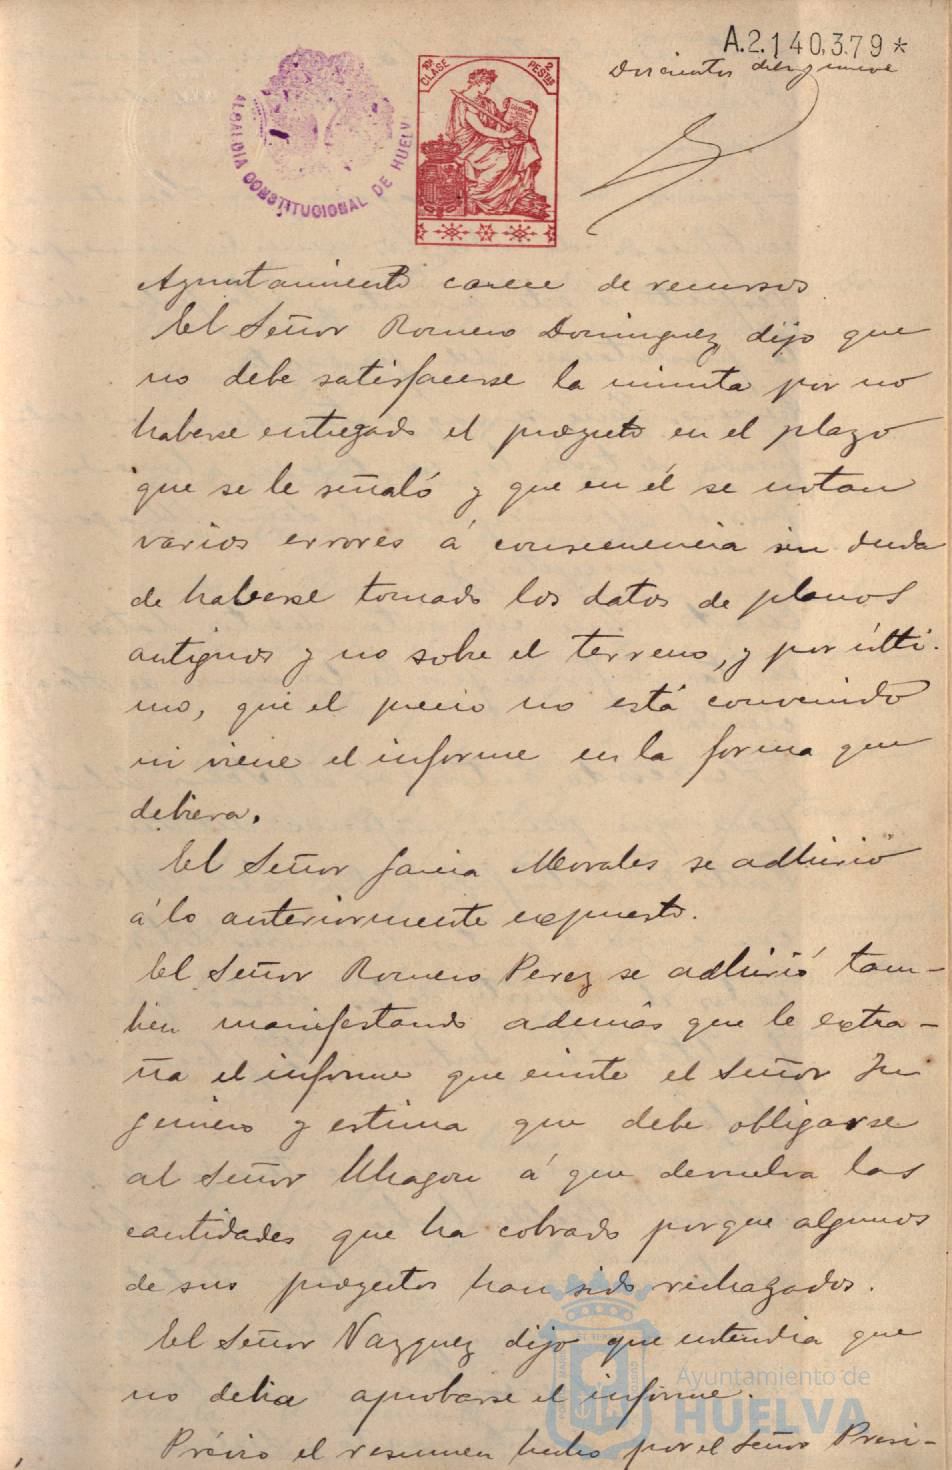 A.2.140.379*
Doscientos diez y nueve
10ª CLASE
2 PESTAS
ALCALDIA CONSTITUCIONAL DE HUELV
Ayuntamiento carece de recursos
El Señor Romero Dominguez dijo que
no debe satisfacerse la minuta por no
haberse entregado el proyecto en el plazo
que se le señaló y que en él se notan
varios errores á consecuencia sin duda
de haberse tomado los datos de planos
antiguos y no sobre el terreno, y por últi-
mo, que el precio no está convenido
ni viene el informe en la forma que
debiera.
El Señor Garcia Morales se adhirió
á lo anteriormente expuesto.
El Señor Romero Perez se adhirió tam-
bien manifestando además que le extra-
ña el informe que emite el Señor In
geniero y estima que debe obligarse
al Señor Uhagon á que devuelva las
cantidades que ha cobrado porque algunos
de sus proyectos han sido rechazados.
El Señor Vazquez dijo que entendia que
no debia aprobarse el informe.
Ayuntamiento de
HUELVA
Prévio el resumen hecho por el Señor Presi-